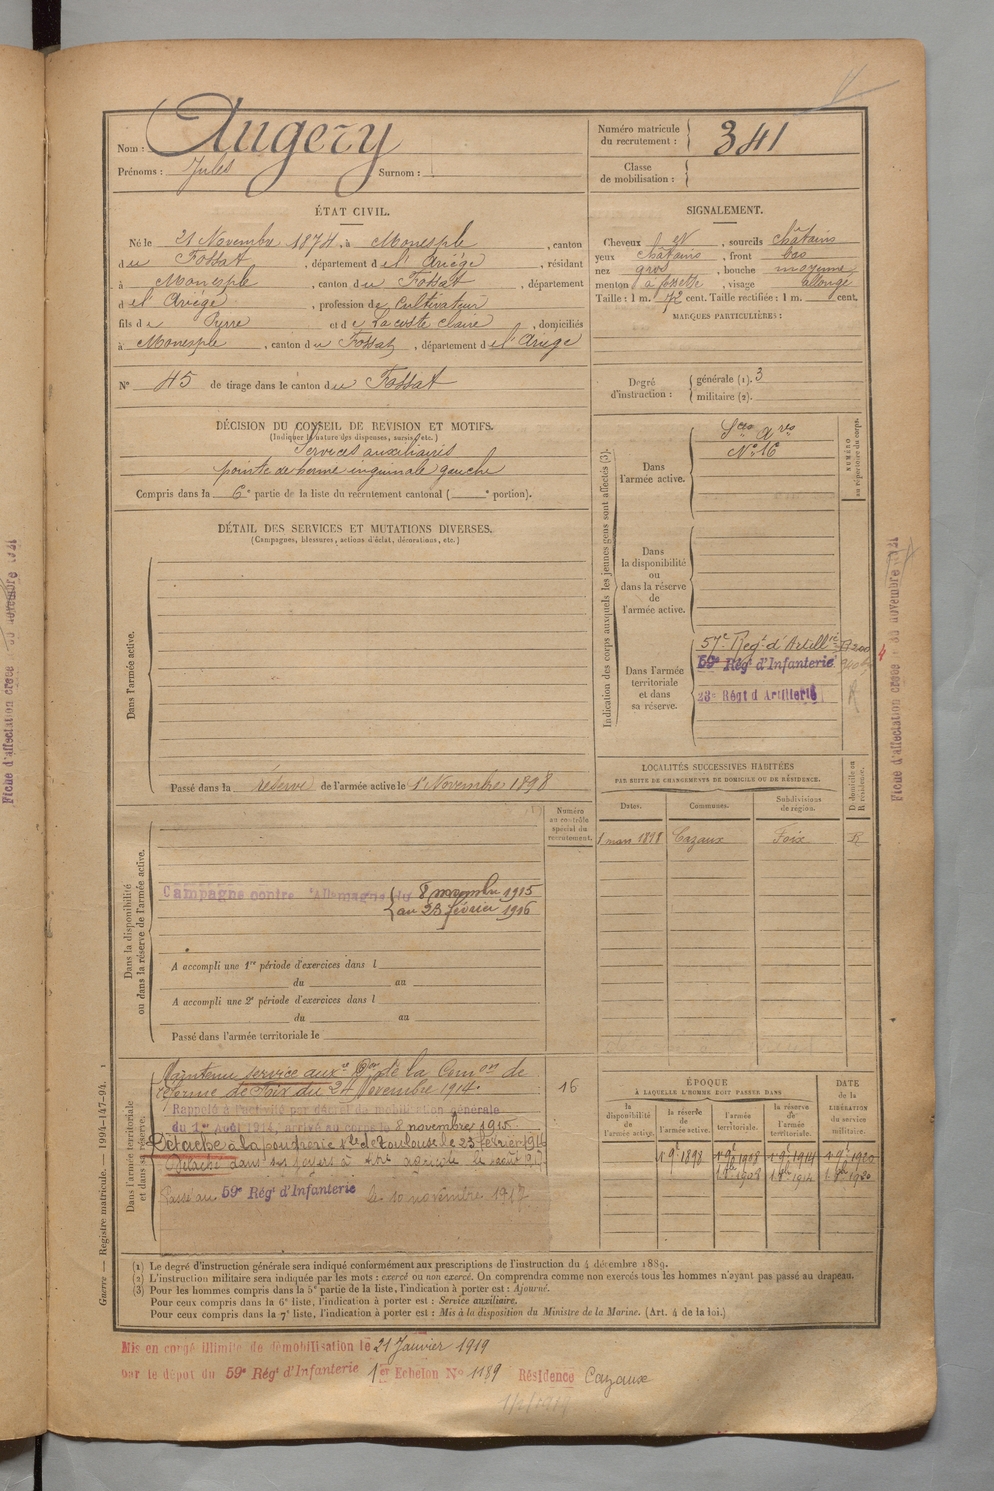 Nom : Augery
Prénoms : Jules Surnom :
Numéro matricule du recrutement : 341
Classe de mobilisation :
ÉTAT CIVIL.
Né le 21 Novembre 1874, à Monesple, canton
du Fossat, département de l'Ariège, résidant
à Monesple, canton du Fossat, département
de l'Ariège, profession de Cultivateur
fils de Pierre et de Lacoste Claire, domiciliés
à Monesple, canton du Fossat, département de l'Ariège
N° 45 de tirage dans le canton du Fossat
SIGNALEMENT.
Cheveux, sourcils châtains
yeux châtains, front bas
nez gros, bouche moyenne
menton à fossette, visage allongé
Taille : 1 m. 72 cent. Taille rectifiée : 1 m. cent.
MARQUES PARTICULIÈRES :
Degré d'instruction : générale (1). 3
militaire (2).
DÉCISION DU CONSEIL DE REVISION ET MOTIFS.
(Indiquer la nature des dispenses, sursis, etc.)
Services auxiliaires
pointe de hernie inguinale gauche
Compris dans la 6e partie de la liste du recrutement cantonal ( e portion).
DÉTAIL DES SERVICES ET MUTATIONS DIVERSES.
(Campagnes, blessures, actions d'éclat, décorations, etc.)
Dans l'armée active.
Passé dans la réserve de l'armée active le 1 Novembre 1898
Indication des corps auxquels les jeunes gens sont affectés (3).
NUMÉRO au répertoire du corps.
Dans l'armée active.
N° 16
Dans la disponibilité ou dans la réserve de l'armée active.
Dans l'armée territoriale et dans sa réserve.
57e Regt d'Artillrie
59e Régt d'Infanterie
23e Régt d'Artillerie
LOCALITÉS SUCCESSIVES HABITÉES
PAR SUITE DE CHANGEMENTS DE DOMICILE OU DE RÉSIDENCE.
D. domicile ou R. résidence.
Dates. Communes. Subdivisions de région.
1 mars 1898 Cazaux Foix R
Numéro au contrôle spécial du recrutement.
Dans la disponibilité ou dans la réserve de l'armée active.
Campagne contre l'Allemagne du 8 novembre 1915
au 23 février 1916
A accompli une 1re période d'exercices dans l
du au
A accompli une 2e période d'exercices dans l
du au
Passé dans l'armée territoriale le
Dans l'armée territoriale et dans sa réserve.
Maintenu service auxre Don de la Comon de
réforme de Foix du 24 Novembre 1914.
Rappelé à l'activité par décret de mobilisation générale
du 1er Août 1914, arrivé au corps le 8 novembre 1915.
Détaché à la poudrerie Nle de Toulouse le 23 février 1916
Passé au 59e Régt d'Infanterie le 10 novembre 1917
16
ÉPOQUE
À LAQUELLE L'HOMME DOIT PASSER DANS
DATE DE LA LIBÉRATION DU SERVICE MILITAIRE.
la disponibilité de l'armée active. la réserve de l'armée active. l'armée territoriale. la réserve de l'armée territoriale.
1 9e 1898 1 9e 1908 1 9e 1914 1 9e 1920
(1) Le degré d'instruction générale sera indiqué conformément aux prescriptions de l'instruction du 4 décembre 1889.
(2) L'instruction militaire sera indiquée par les mots : exercé ou non exercé. On comprendra comme non exercés tous les hommes n'ayant pas passé au drapeau.
(3) Pour les hommes compris dans la 5e partie de la liste, l'indication à porter est : Ajourné.
Pour ceux compris dans la 6e liste, l'indication à porter est : Service auxiliaire.
Pour ceux compris dans la 7e liste, l'indication à porter est : Mis à la disposition du Ministre de la Marine. (Art. 4 de la loi.)
Guerre — Registre matricule. — 1994-147-94.
Mis en congé illimité de démobilisation le 21 Janvier 1919
par le dépôt du 59e Régt d'Infanterie 1er Echelon N° 1189 Résidence Cazaux